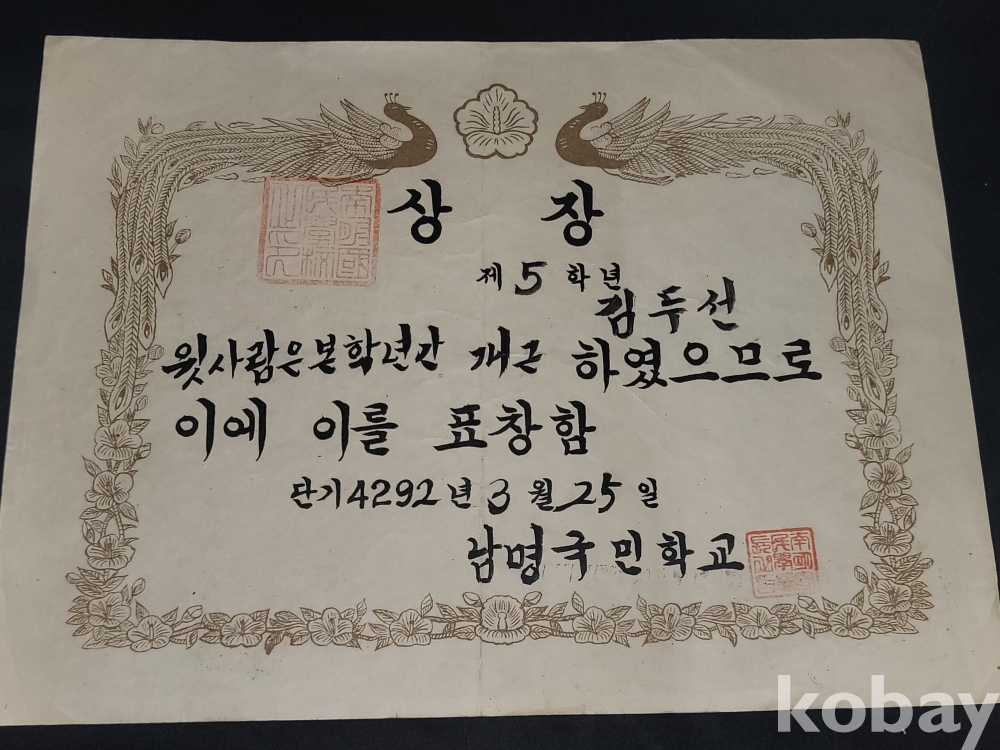 상 장
제 5 학년
김두선
윗사람은본학년간 개근 하였으므로
이에 이를 표창함
단기4292년 3월 25일
남명국민학교
kobay